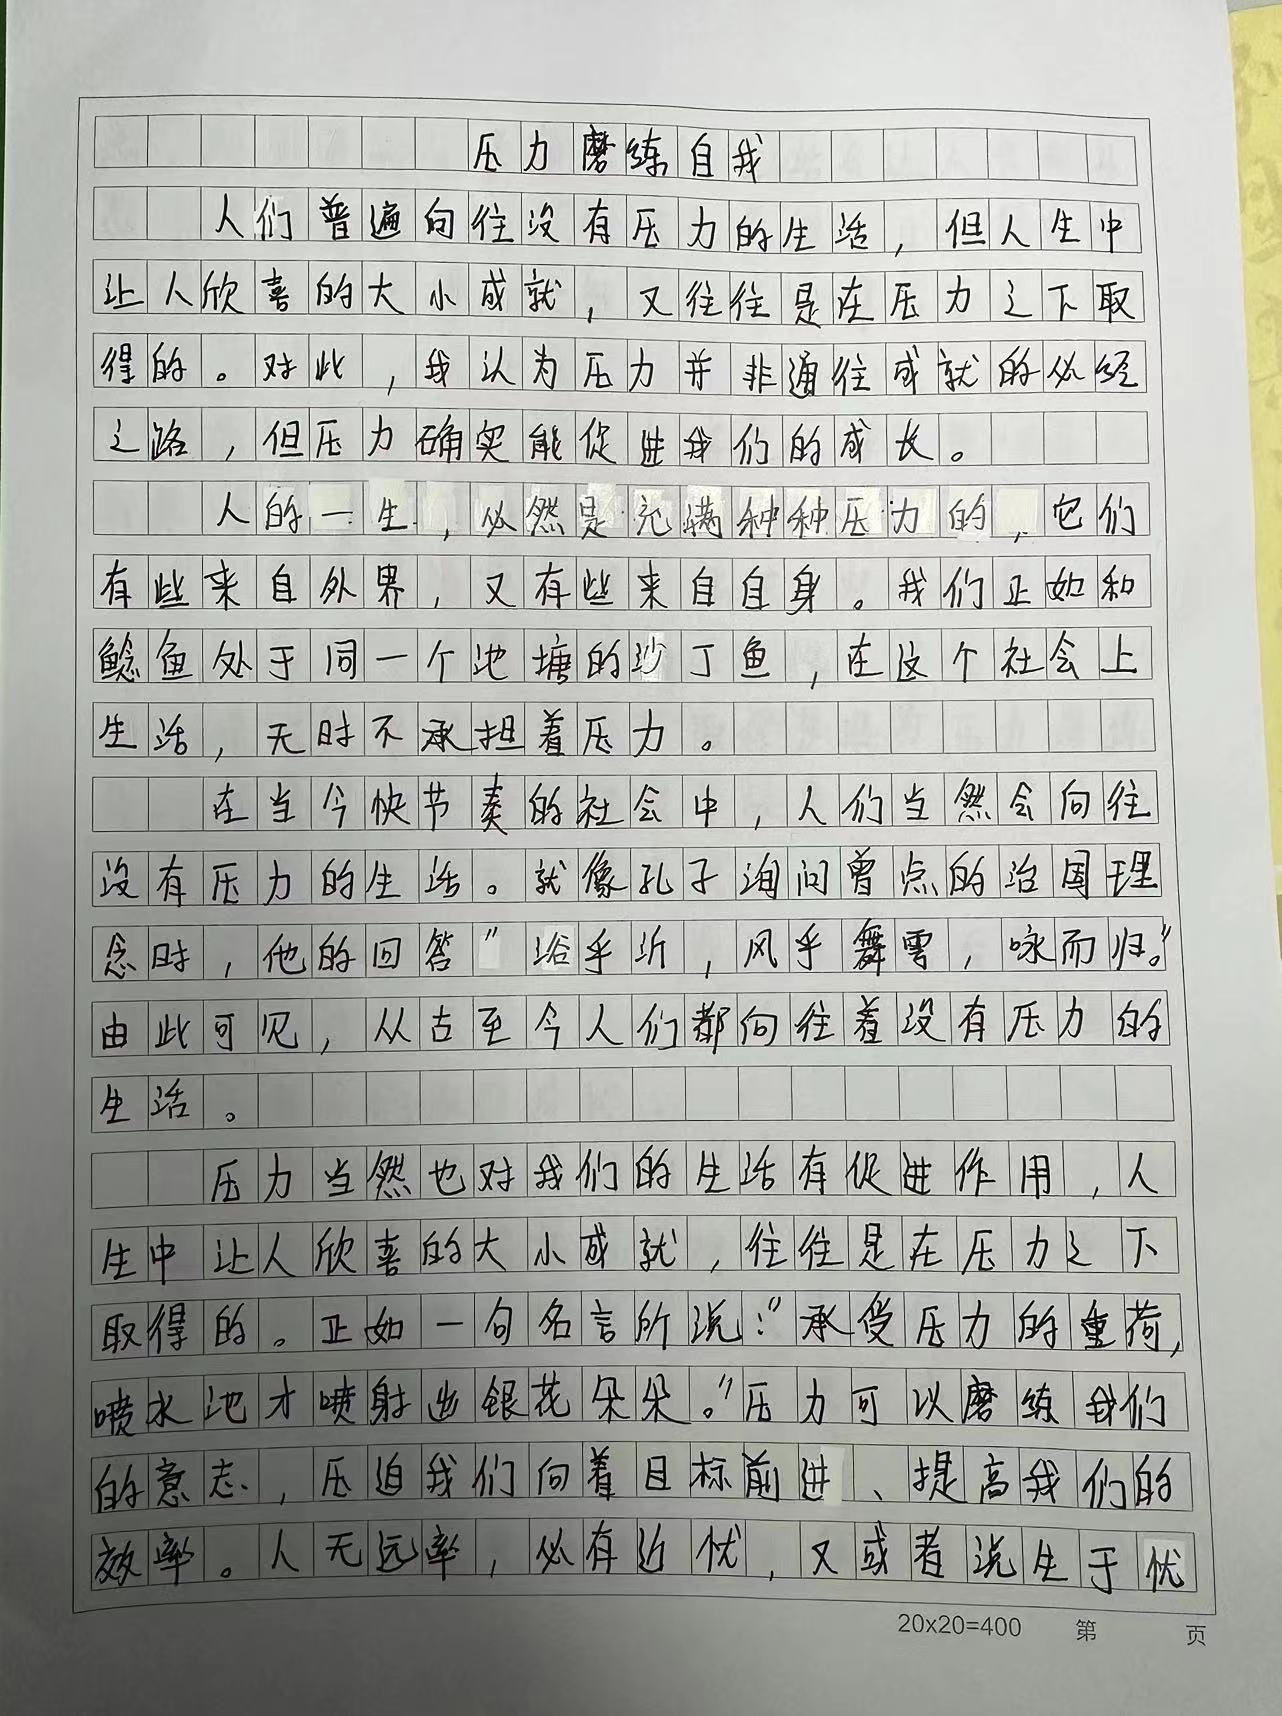 压力磨练自我
人们普遍向往没有压力的生活，但人生中
让人欣喜的大小成就，又往往是在压力之下取
得的。对此，我认为压力并非通往成就的必经
之路，但压力确实能促进我们的成长。
人的一生，必然是充满种种压力的，它们
有些来自外界，又有些来自自身。我们正如和
鲶鱼处于同一个池塘的沙丁鱼，在这个社会上
生活，无时不承担着压力。
在当今快节奏的社会中，人们当然会向往
没有压力的生活。就像孔子询问曾点的治国理
念时，他的回答"浴乎沂，风乎舞雩，咏而归。"
由此可见，从古至今人们都向往着没有压力的
生活。
压力当然也对我们的生活有促进作用，人
生中让人欣喜的大小成就，往往是在压力之下
取得的。正如一句名言所说："承受压力的重荷，
喷水池才喷射出银花朵朵。"压力可以磨练我们
的意志，压迫我们向着目标前进、提高我们的
效率。人无远率，必有近忧，又或者说生于忧
20x20=400 第 页